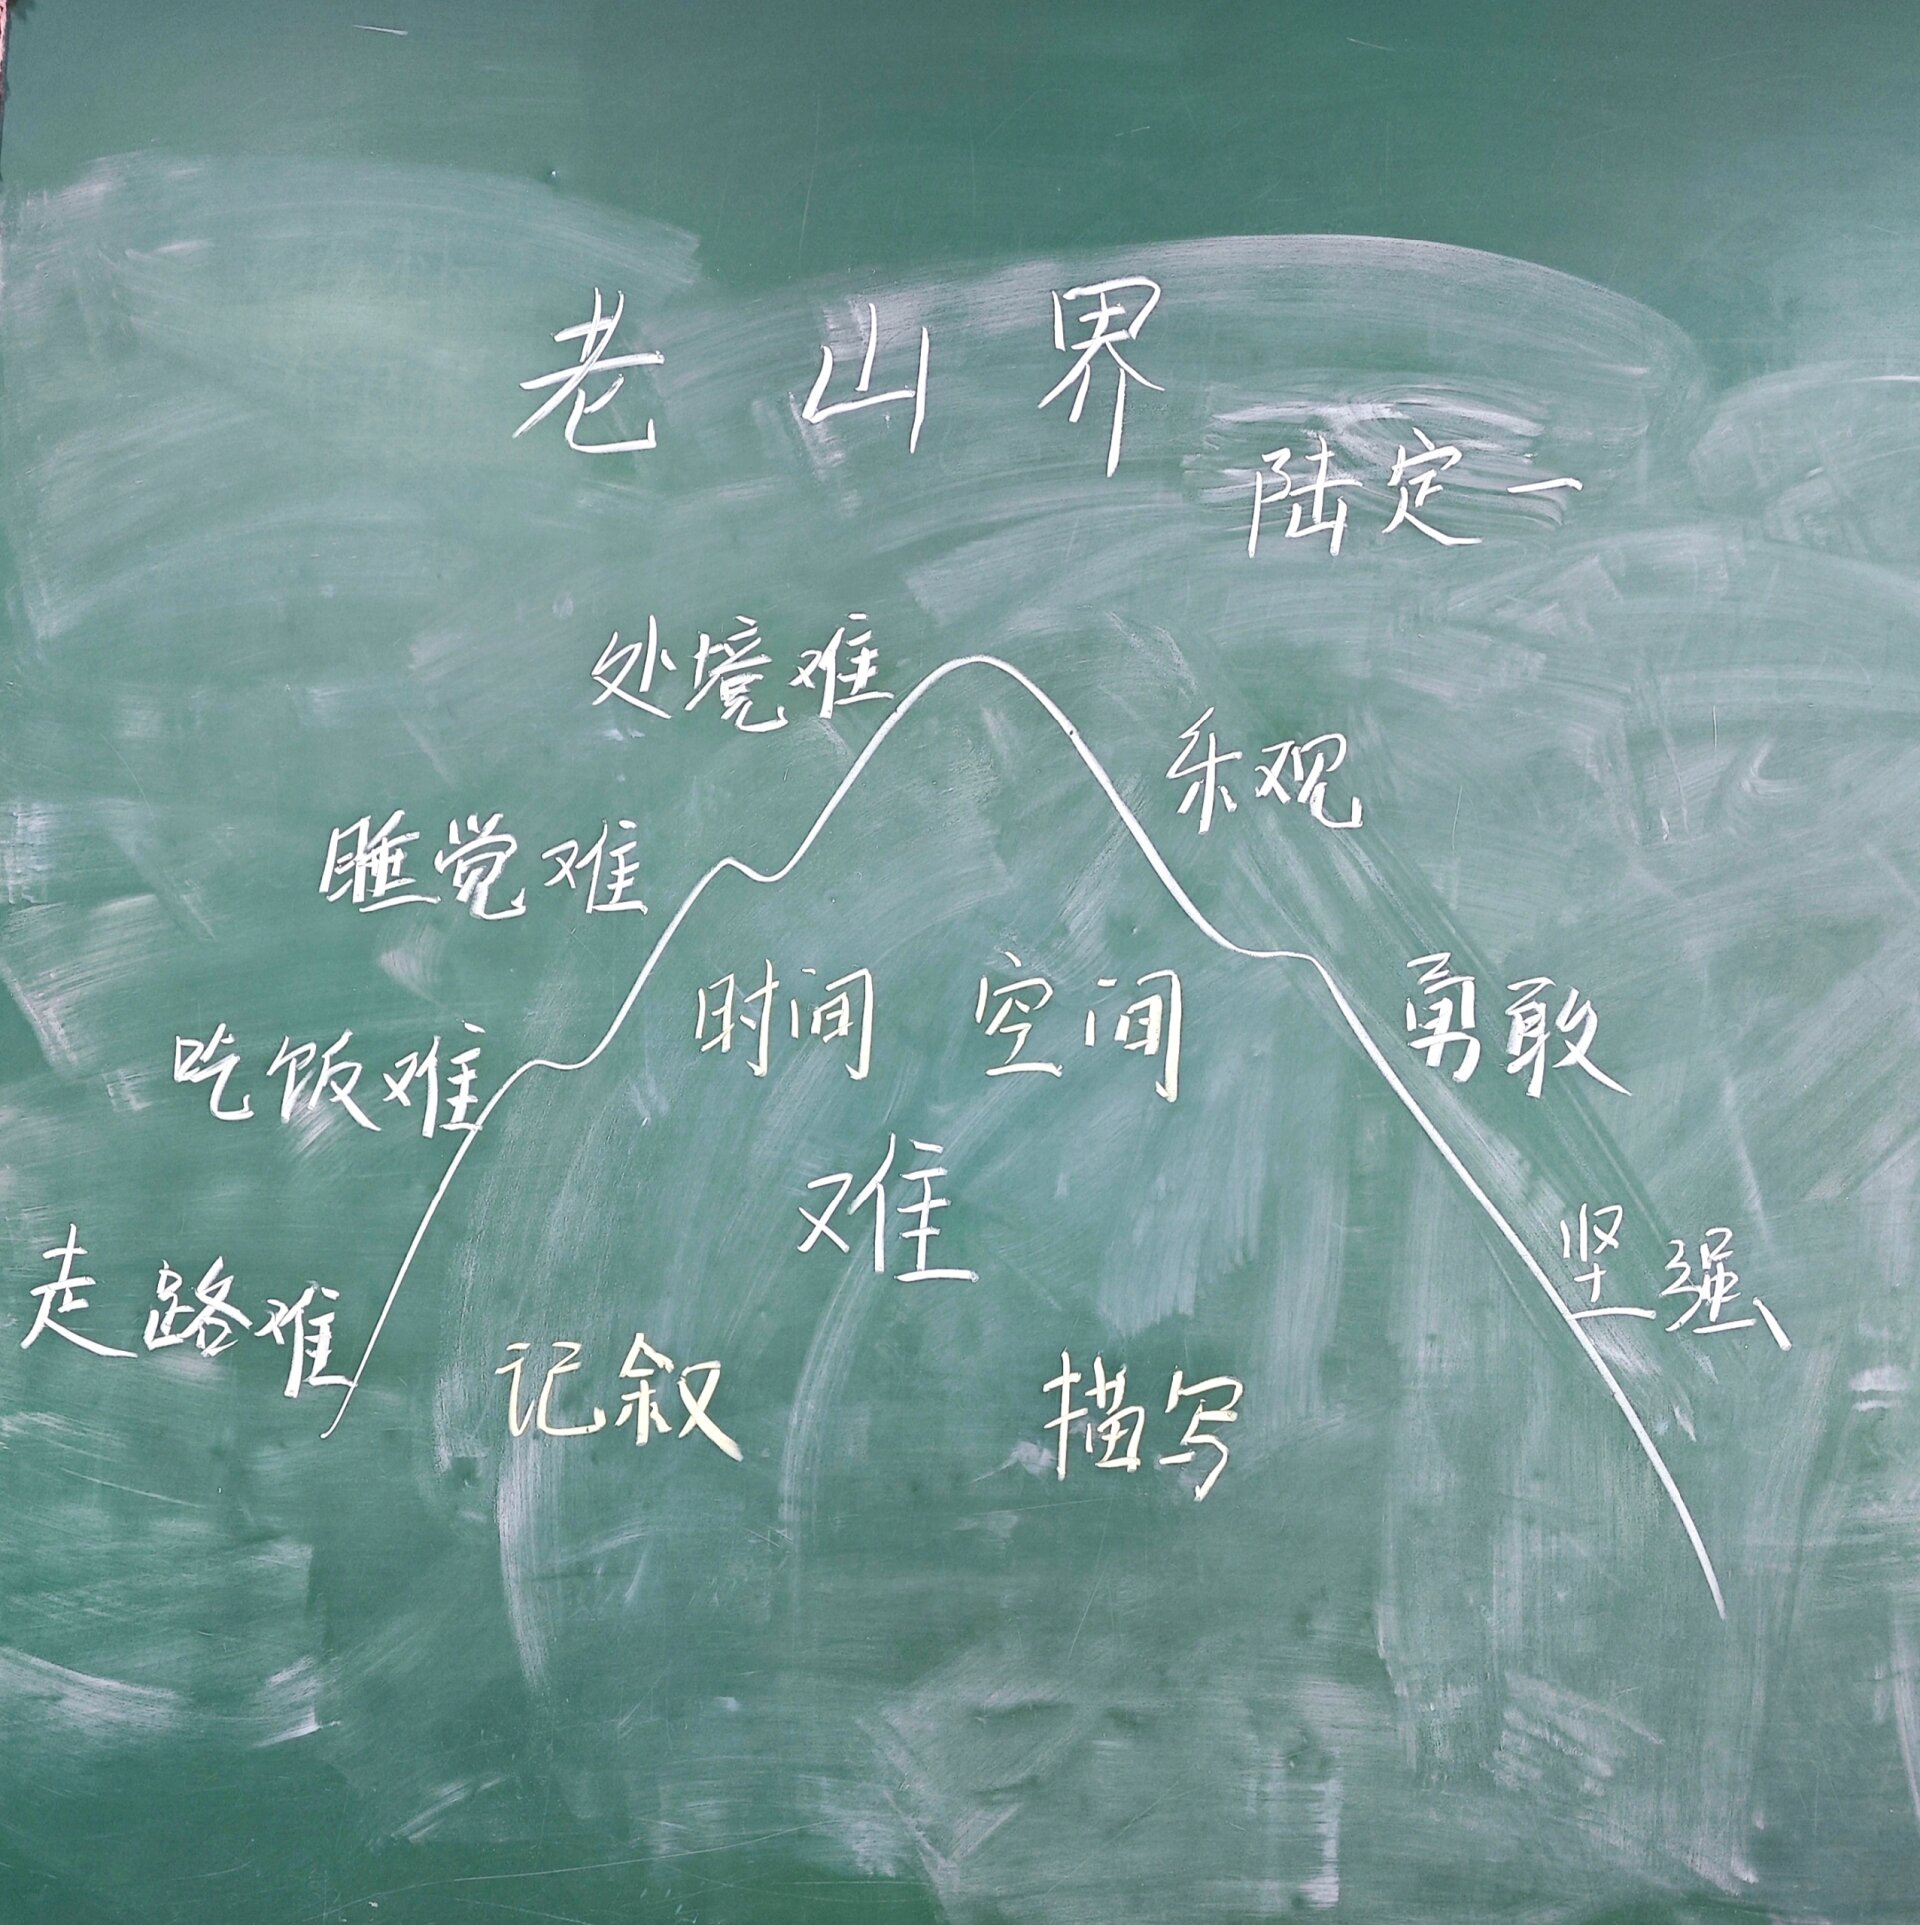 老山界
陆定一
处境难
乐观
睡觉难
时间 空间
勇敢
吃饭难
难
坚强
走路难
记叙 描写